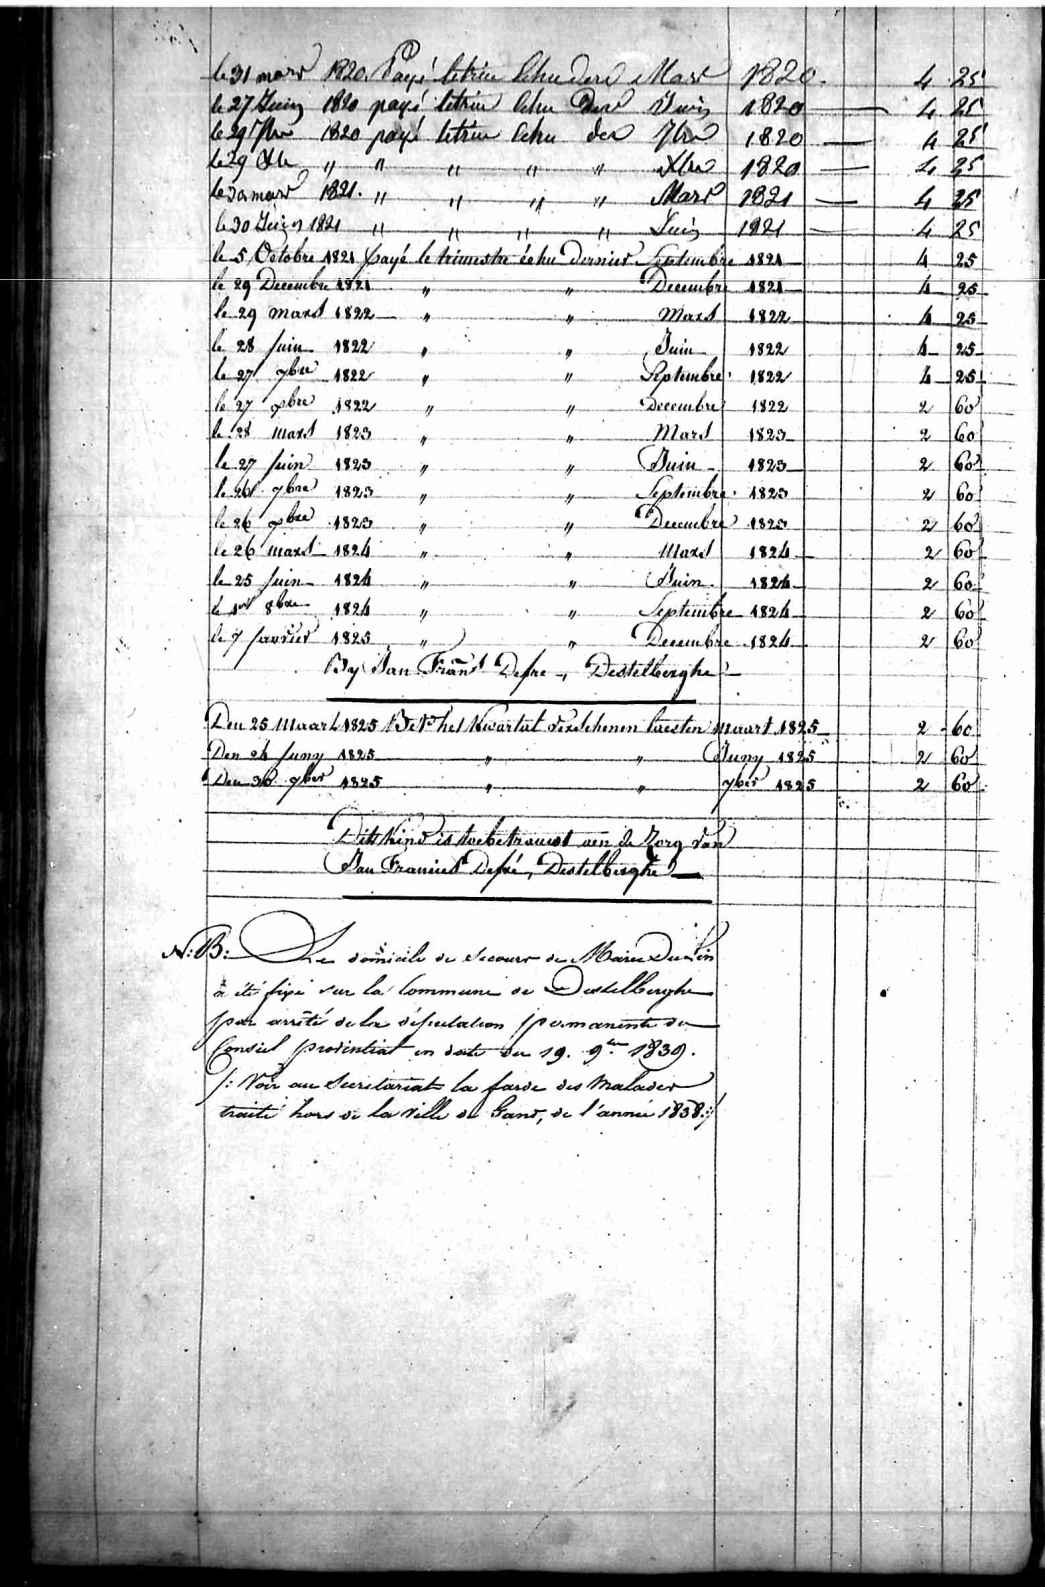 le 31 mars 1820. Payé letrim Echu der Mars 1820. 4 25
le 27 Juin 1820 payé letrim Echu der Juin 1820 — 4 25
le 29 7bre 1820 payé letrim Echu der 7bre 1820 — 4 25
le 29 Xbre " " " " " Xbre 1820 — 4 25
le 30 mars 1821. " " " " Mars 1821 — 4 25
le 30 Juin 1821 " " " " Juin 1821 — 4 25
le 5 Octobre 1821 payé le trimestre échu dernier Septembre 1821 4 25
le 29 Decembre 1821 " " Decembre 1821 4 25
le 29 mars 1822 " " Mars 1822 4 25
le 28 juin 1822 " " Juin 1822 4 25
le 27 7bre 1822 " " Septembre 1822 4 25
le 27 xbre 1822 " " Decembre 1822 2 60
le 28 mars 1823 " " Mars 1823 2 60
le 27 juin 1823 " " Juin 1823 2 60
le 26 7bre 1823 " " Septembre 1823 2 60
le 26 xbre 1823 " " Decembre 1823 2 60
le 26 mars 1824 " " Mars 1824 2 60
le 25 juin 1824 " " Juin 1824 2 60
le 1er 8bre 1824 " " Septembre 1824 2 60
le 7 favrier 1825 " " Decembre 1824 2 60
By Jan Frans Defre, Destelberghe
Den 25 Maart 1825 Bet. het Kwartal verschenen laesten maart 1825 2 60
Den 24 Juny 1825 " " Juny 1825 2 60
Den 30 7ber 1825 " " 7ber 1825 2 60
Dit kind is toebetrauwt aen de Zorg van
Jan Francies Defré, Destelberghe
N: B: Le domicile de secours de Marie
a été fixé sur la Commune de Destelberghe
par arrêté de la députation permanente du
Conseil provincial en date du 19. 9bre 1839.
/: Voir au Secrétariat la farde des Malades
traité hors de la ville de Gand, de l'année 1838 :/